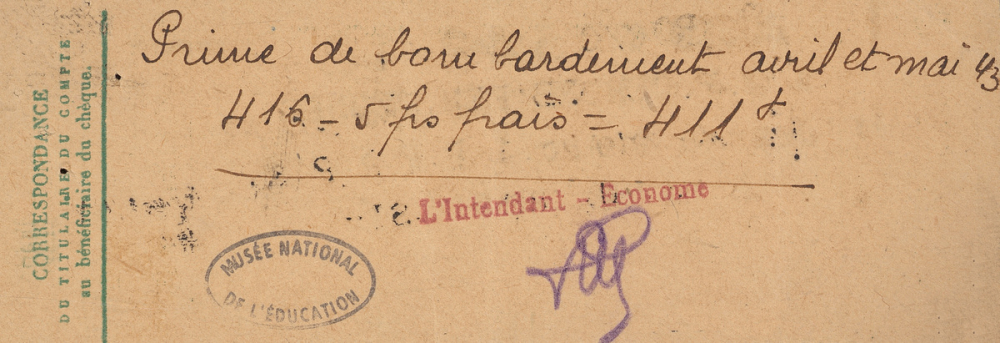 CORRESPONDANCE
DU TITULAIRE DU COMPTE
au bénéficiaire du chèque.
Prime de bombardement avril et mai 43
416 - 5 frs frais = 411 f
L'Intendant - Econome
MUSÉE NATIONAL
DE L'ÉDUCATION